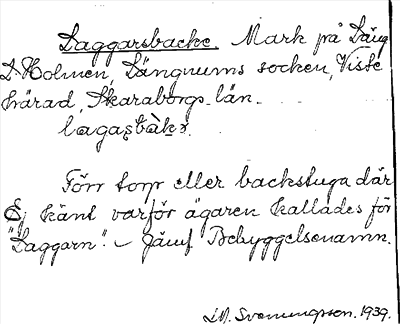 Laggarsbacke. Mark på Läng
D. Holmen, Längnums socken, Viste
härad, Skaraborgs län.
lagaṣbàkɤ.
Förr torp eller backstuga där
Ej känt varför ägaren kallades för
"Laggarn". – Jämf. Bebyggelsenamn.
Svenungsson. 1939.